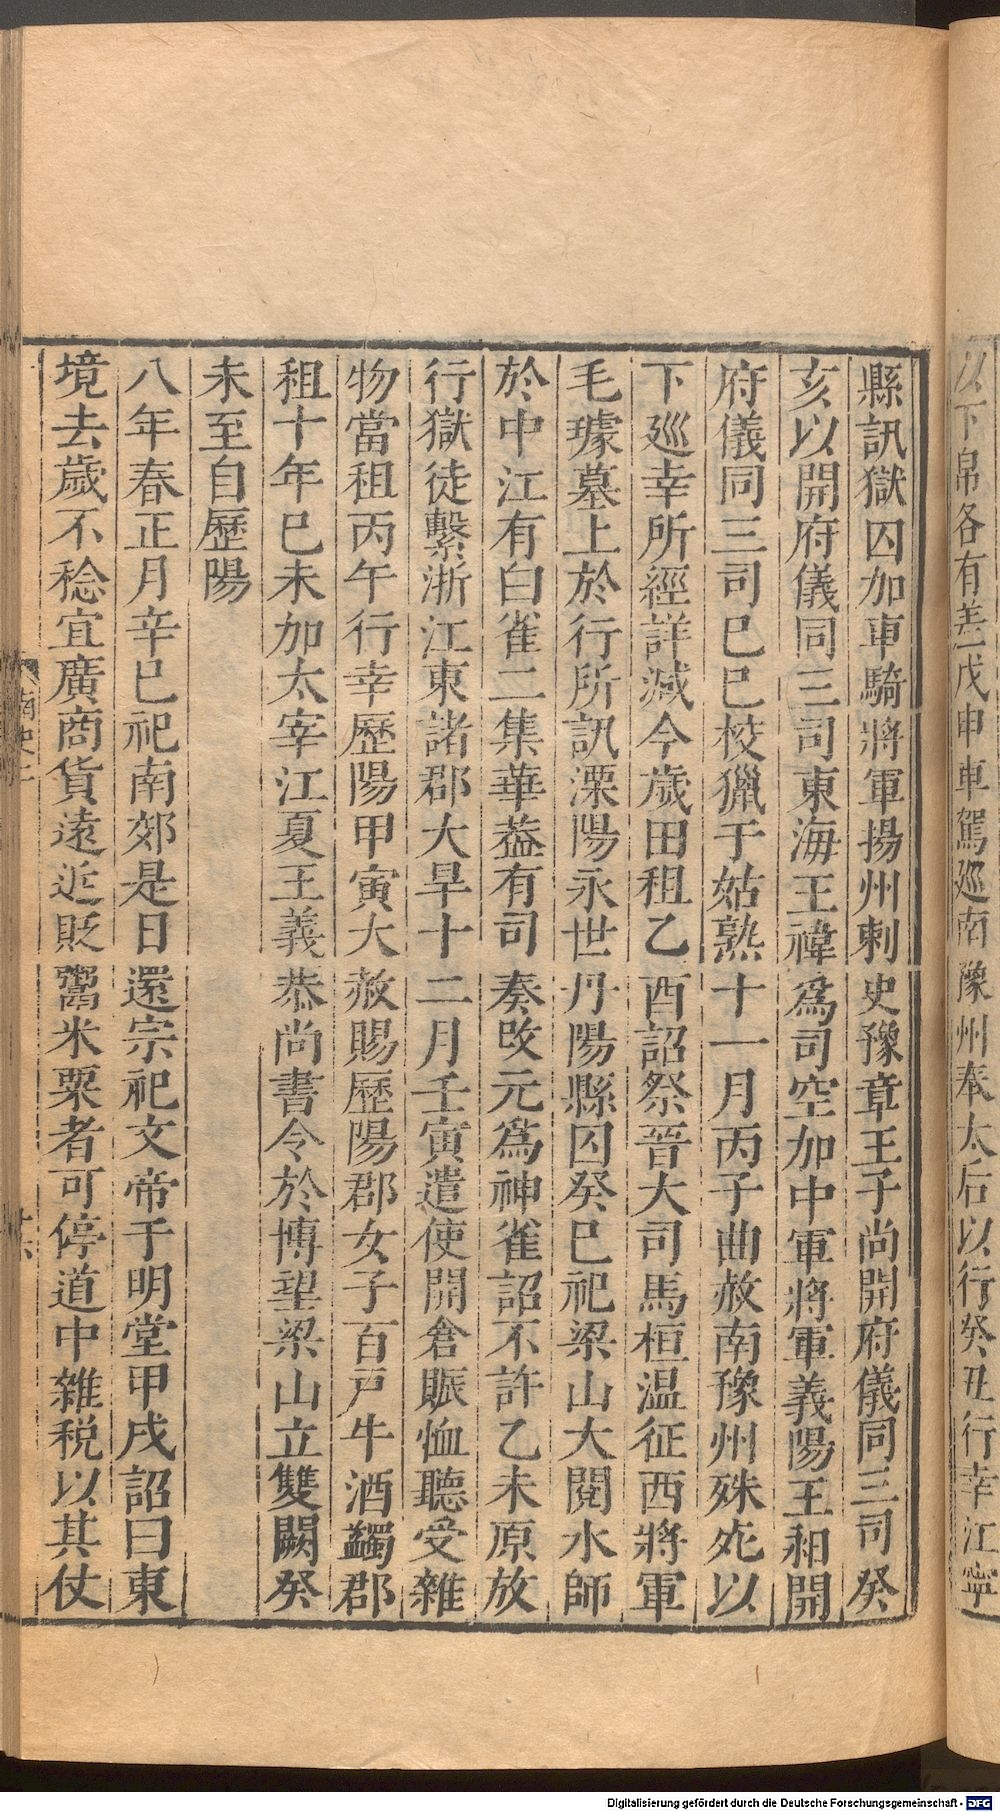 以下帛各有差戊申車駕巡南豫州奉太后以行癸丑行幸江寧
縣訊獄囚加車騎將軍揚州刺史豫章王子尚開府儀同三司癸
亥以開府儀同三司東海王禕爲司空加中軍將軍義陽王昶開
府儀同三司巳巳校獵于姑熟十一月丙子曲赦南豫州殊死以
下巡幸所經詳減今歲田租乙酉詔祭晉大司馬桓温征西將軍
毛璩墓上於行所訊溧陽永世丹陽縣囚癸巳祀梁山大閱水師
於中江有白雀二集華葢有司奏改元爲神雀詔不許乙未原放
行獄徒繫浙江東諸郡大旱十二月壬寅遣使開倉賑恤聽受雜
物當租丙午行幸歷陽甲寅大赦賜歷陽郡女子百戸牛酒蠲郡
租十年巳未加太宰江夏王義恭尚書令於博望梁山立雙闕癸
未至自歷陽
八年春正月辛巳祀南郊是日還宗祀文帝于明堂甲戌詔曰東
境去歲不稔宜廣商貨遠近販鬻米粟者可停道中雜稅以其仗
南史二
十六
Digitalisierung gefördert durch die Deutsche Forschungsgemeinschaft - DFG